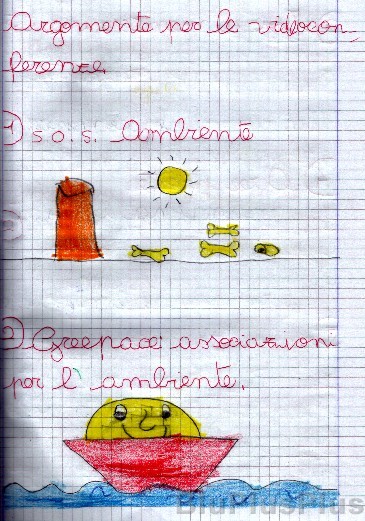 Argomente per le videocon_
ferenze.
1) s.o.s. Ambiente
2) Greepace: associazioni
per l' ambiente.
BluPlusPlus